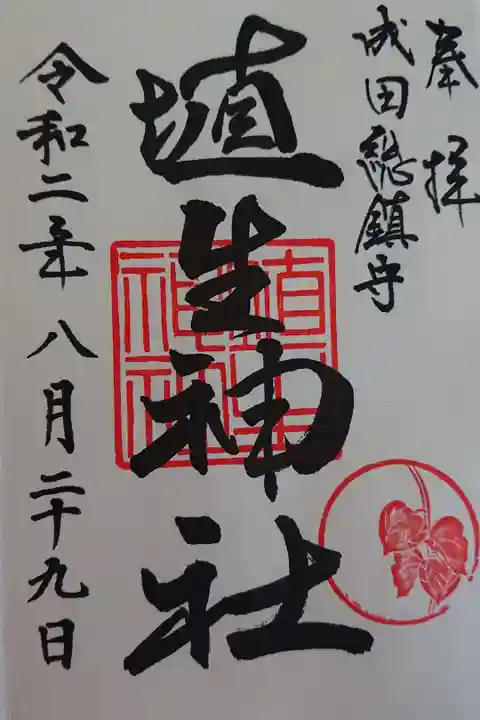 奉拝
成田総鎮守
埴生神社
令和二年八月二十九日
埴生神社